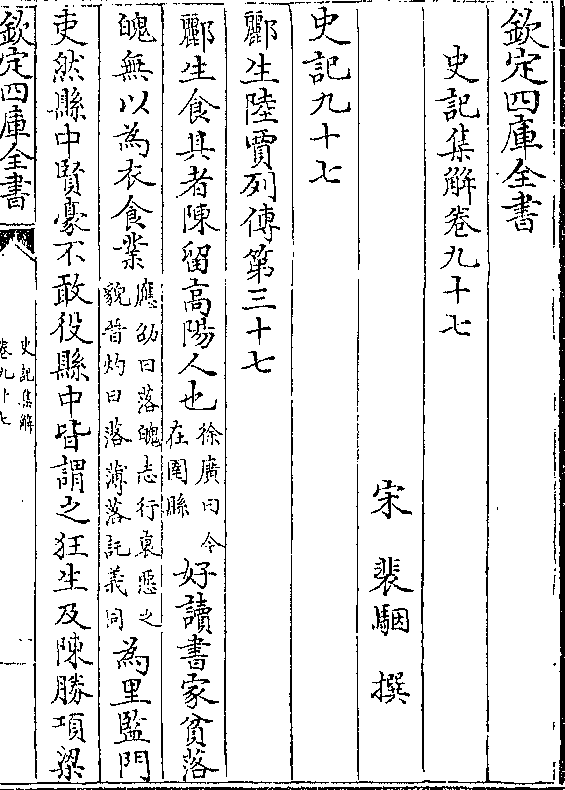 欽定四庫全書
史記集解卷九十七
宋 裴駰 撰
史記九十七
酈生陸賈列傳第三十七
酈生食其者陳留高陽人也
徐廣曰今
在圉縣
好讀書家貧落
魄無以為衣食業
應劭曰落魄志行衰惡之
貌晉灼曰落薄落託義同
為里監門
吏然縣中賢豪不敢役縣中皆謂之狂生及陳勝項梁
欽定四庫全書
史記集解
卷九十七